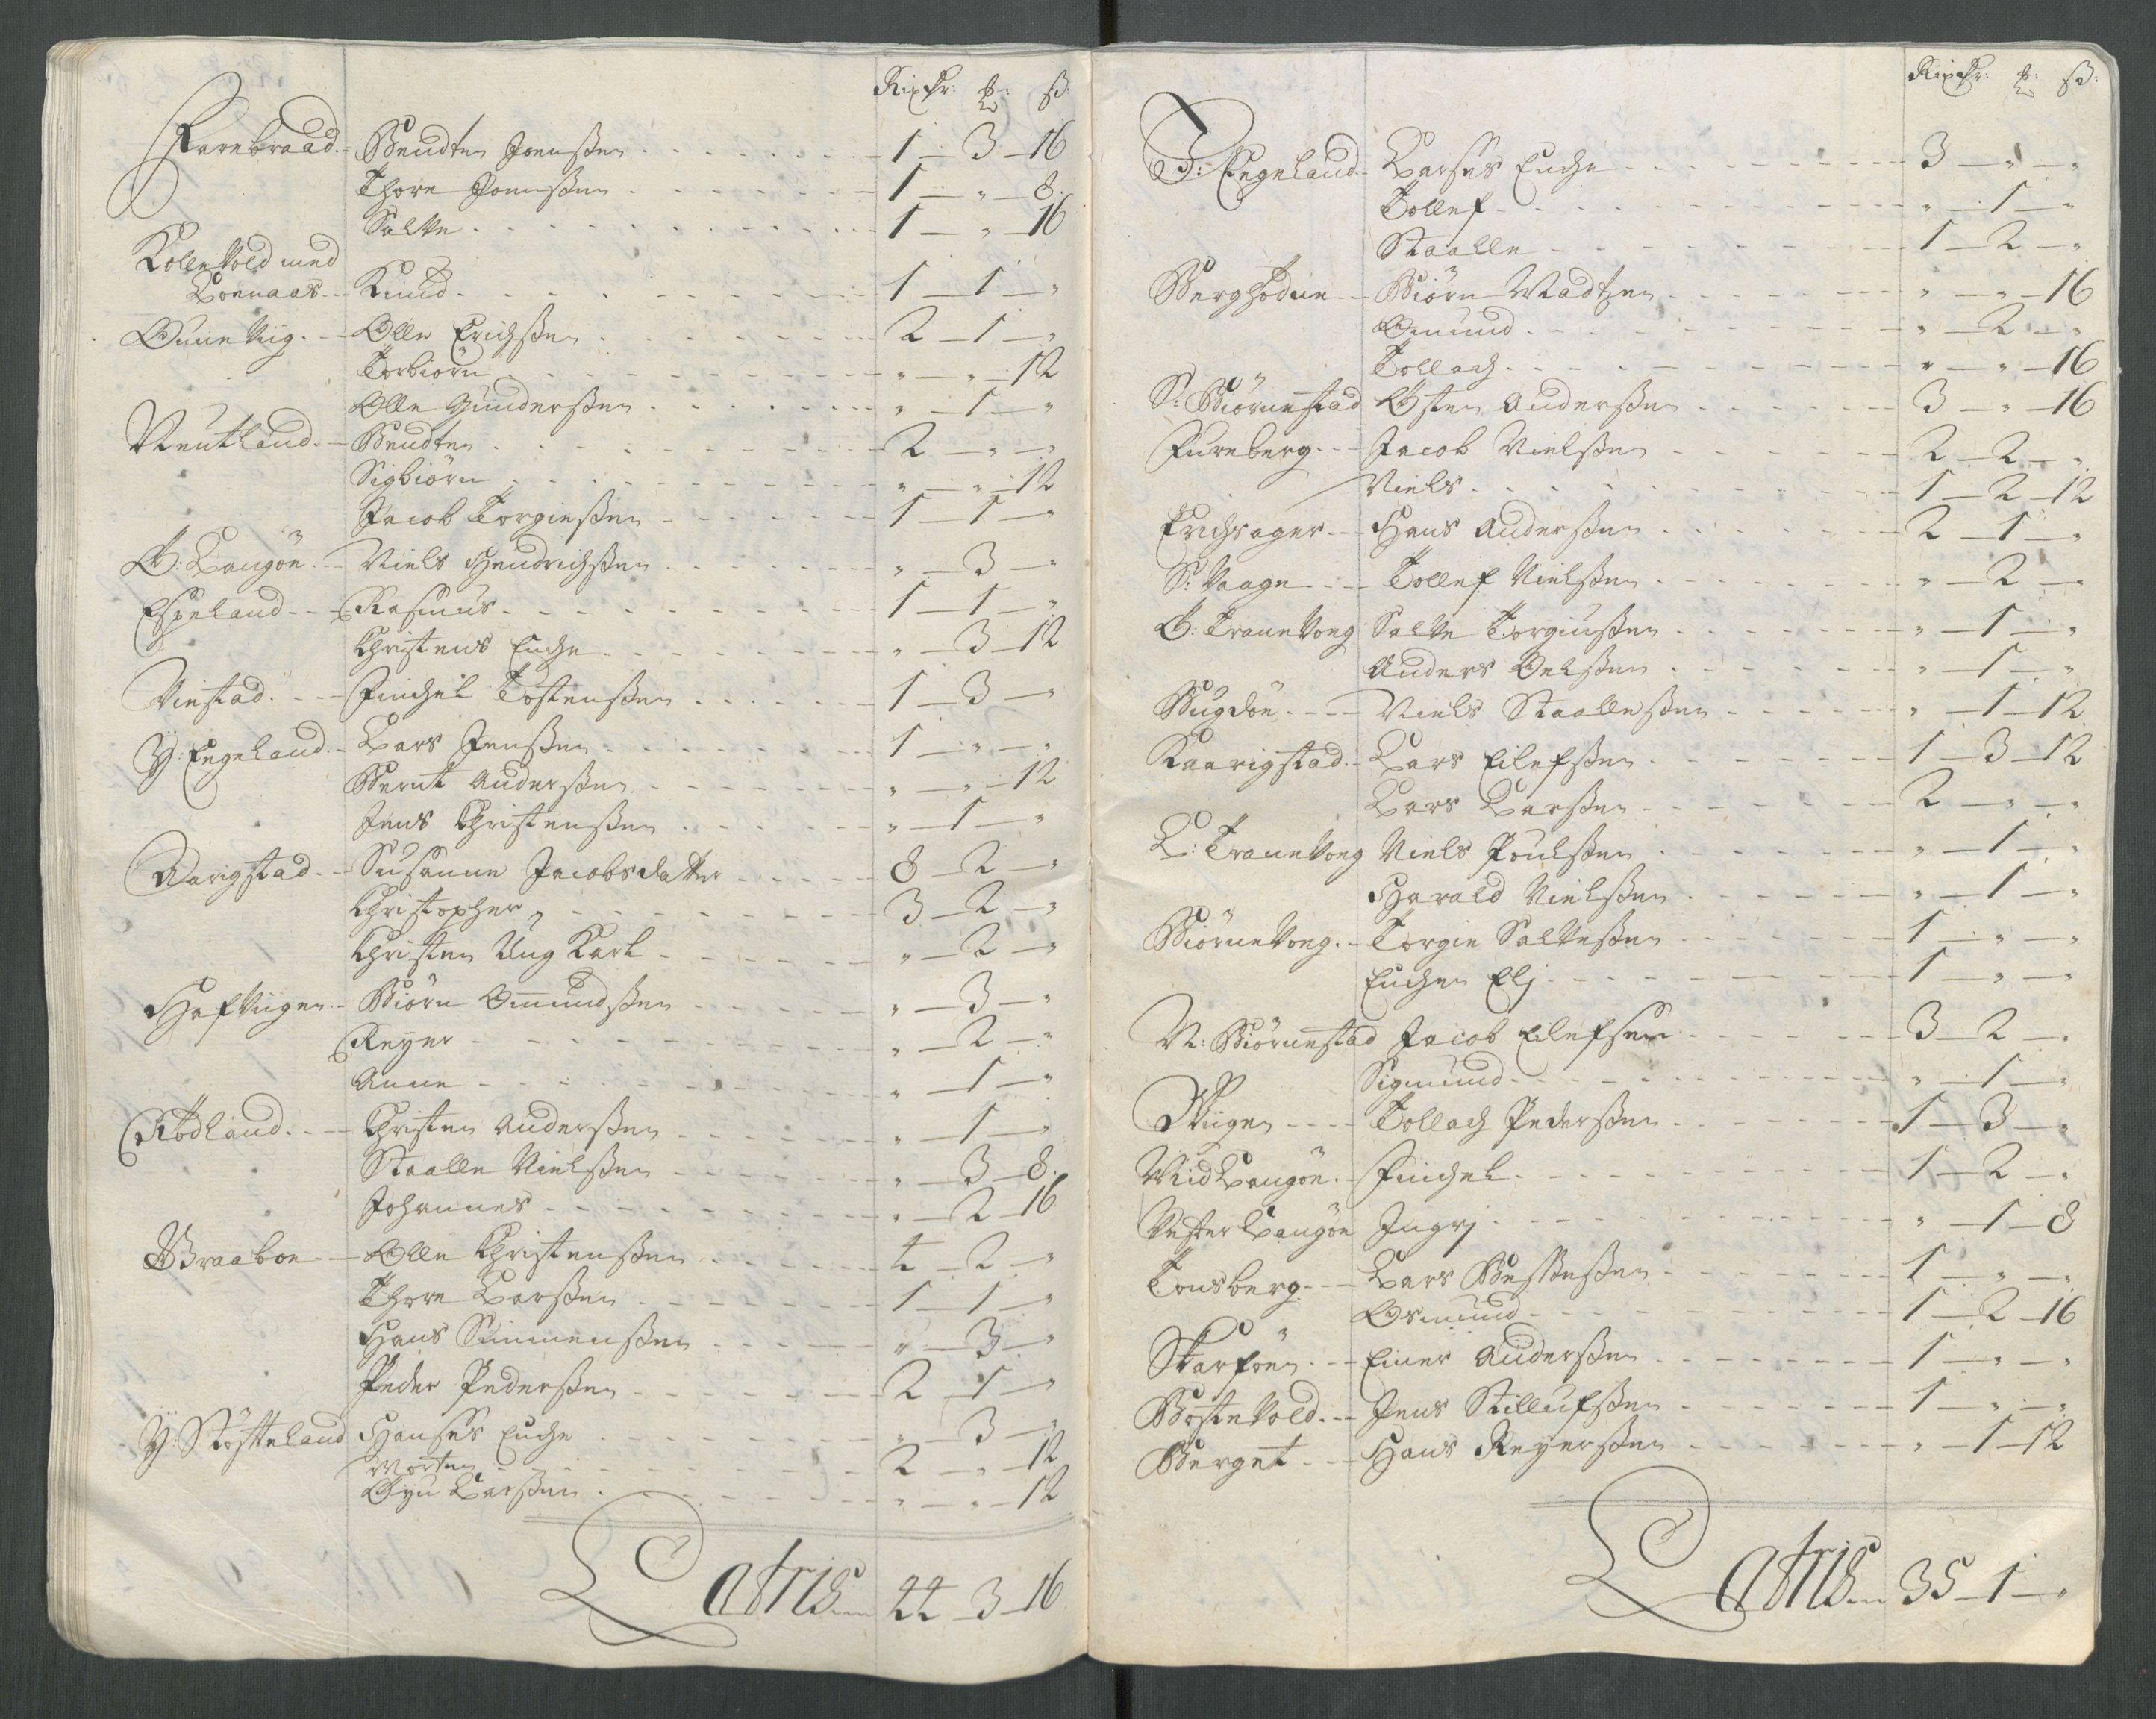 Rixdr: ₰: ß:
Farebraad. Bendten Joenßen 1 – 3 – 16
Thore Joenßen 1 – „ – 8.
Salve 1 – „ – 16
Kollevold med
Loenaas. Knud 1 – 1 – „
Ounevig. Olle Erichßen 2 – 1 – „
Torbiørn „ – „ – 12
Olle Gunderßen „ – 1 – „
Neutland. Bendten 2 – „ – „
Sigbiørn „ – „ – 12
Jacob Torgießen 1 – 1 – „
Ø: Langøe. Niels Hendrichßen „ – 3 – „
Espeland Rasmus 1 – 1 – „
Christens Enche „ – 3 – 12
Vinstad. Finchel Tostenßen 1 – 3 – „
Y: Eegeland. Lars Jenßen 1 – „ – „
Bernt Anderßen „ – „ – 12
Jens Christenßen „ – 1 – „
Aarigstad. Susanne Jacobsdatter 8 – 2 – „
Christopher 3 – 2 – „
Christen Ung Karl „ – 2 – „
Hafviigen. Biørn Omundßen „ – 3 – „
Reyer „ – 2 – „
Anne „ – 1 – „
Rødland. Christen Anderßen „ – 1 – „
Staalle Nielßen „ – 3 – 8.
Johannes „ – 2 – 16
Braaboe Olle Christenßen 4 – 2 – „
Thore Larßen 1 – 1 – „
Hans Simmenßen „ – 3 – „
Peder Pederßen 2 – 1 – „
Y: Støtteland Hanses Enche „ – 3 – „
Morten 2 – „ – 12
Øyn Larßen „ – „ – 12
Latris 44 – 3 – 16
Rixdr: ₰: ß:
I: Eegeland. Larses Enche 3 – „ – „
Tollef „ – 1 – „
Staalle 1 – 2 – „
Berghodne Biørn Madtzen „ – „ – 16
Omund „ – 2 – „
Tollach „ – „ – 16
S: Biørnestad Østen Anderßen 3 – „ – 16
Fureberg. Jacob Nielßen 2 – 2 – „
Niels 1 – 2 – 12
Erichsager. Hans Anderßen 2 – 1 – „
S: Vaage Tollef Nielßen „ – 2 – „
Ø: Tranevong Salve Torgiußen „ – 1 – „
Anders Oelßen „ – 1 – „
Bugdøe. Niels Staalleßen „ – 1 – 12
Kaarigstad. Lars Eilefßen 1 – 3 – 12
Lars Larßen 2 – „ – „
L: Tranevong Niels Poulßen „ – 1 – „
Harald Nielßen „ – 1 – „
Biørnevong. Torgie Salveßen 1 – „ – „
Enchen Elj 1 – „ – „
N: Biørnestad Jacob Eilefsen 3 – 2 – „
Sigmund „ – 1 – „
Viigen Tollach Pederßen 1 – 3 – „
Mid Langøe. Finchel 1 – 2 – „
Vester Langøe Ingrj „ – 1 – 8
Tonsberg. Lars Beßeßen 1 – „ – „
Osmund 1 – 2 – 16
Skarføen. Einer Anderßen 1 – „ – „
Bostevold. Jens Stillufßen 1 – „ – „
Berget Hans Reyerßen „ – 1 – 12
Latris 35 – 1 – „